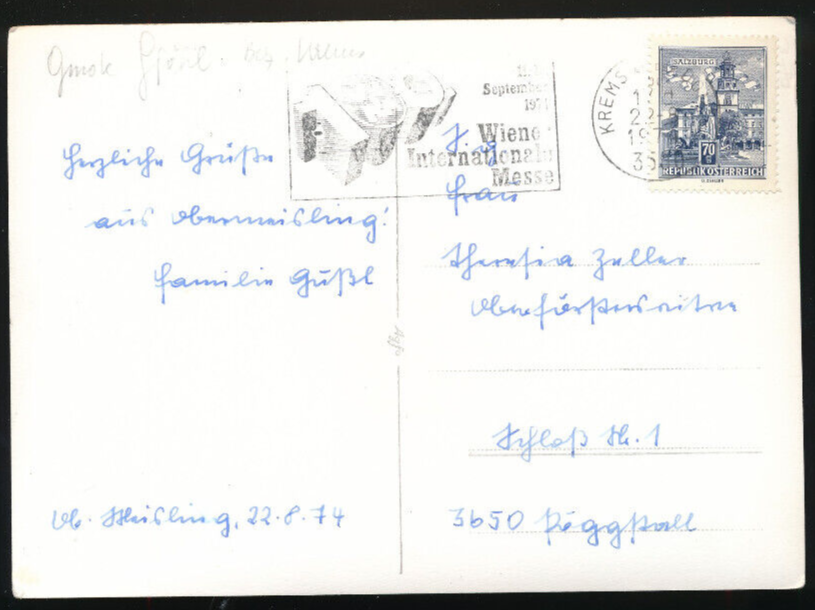 Gmde Gföhl. Bez. Krems
Herzliche Grüße
aus Obermeisling!
Familie Güßl
Ob. Meisling, 22.8.74
September
Wiener
Internationale
Messe
KREMS
22
35
SALZBURG
70
REPUBLIK ÖSTERREICH
Frau
Theresia Zeller
Oberförsterswitwe
Schloß Nr. 1
3650 Pöggstall